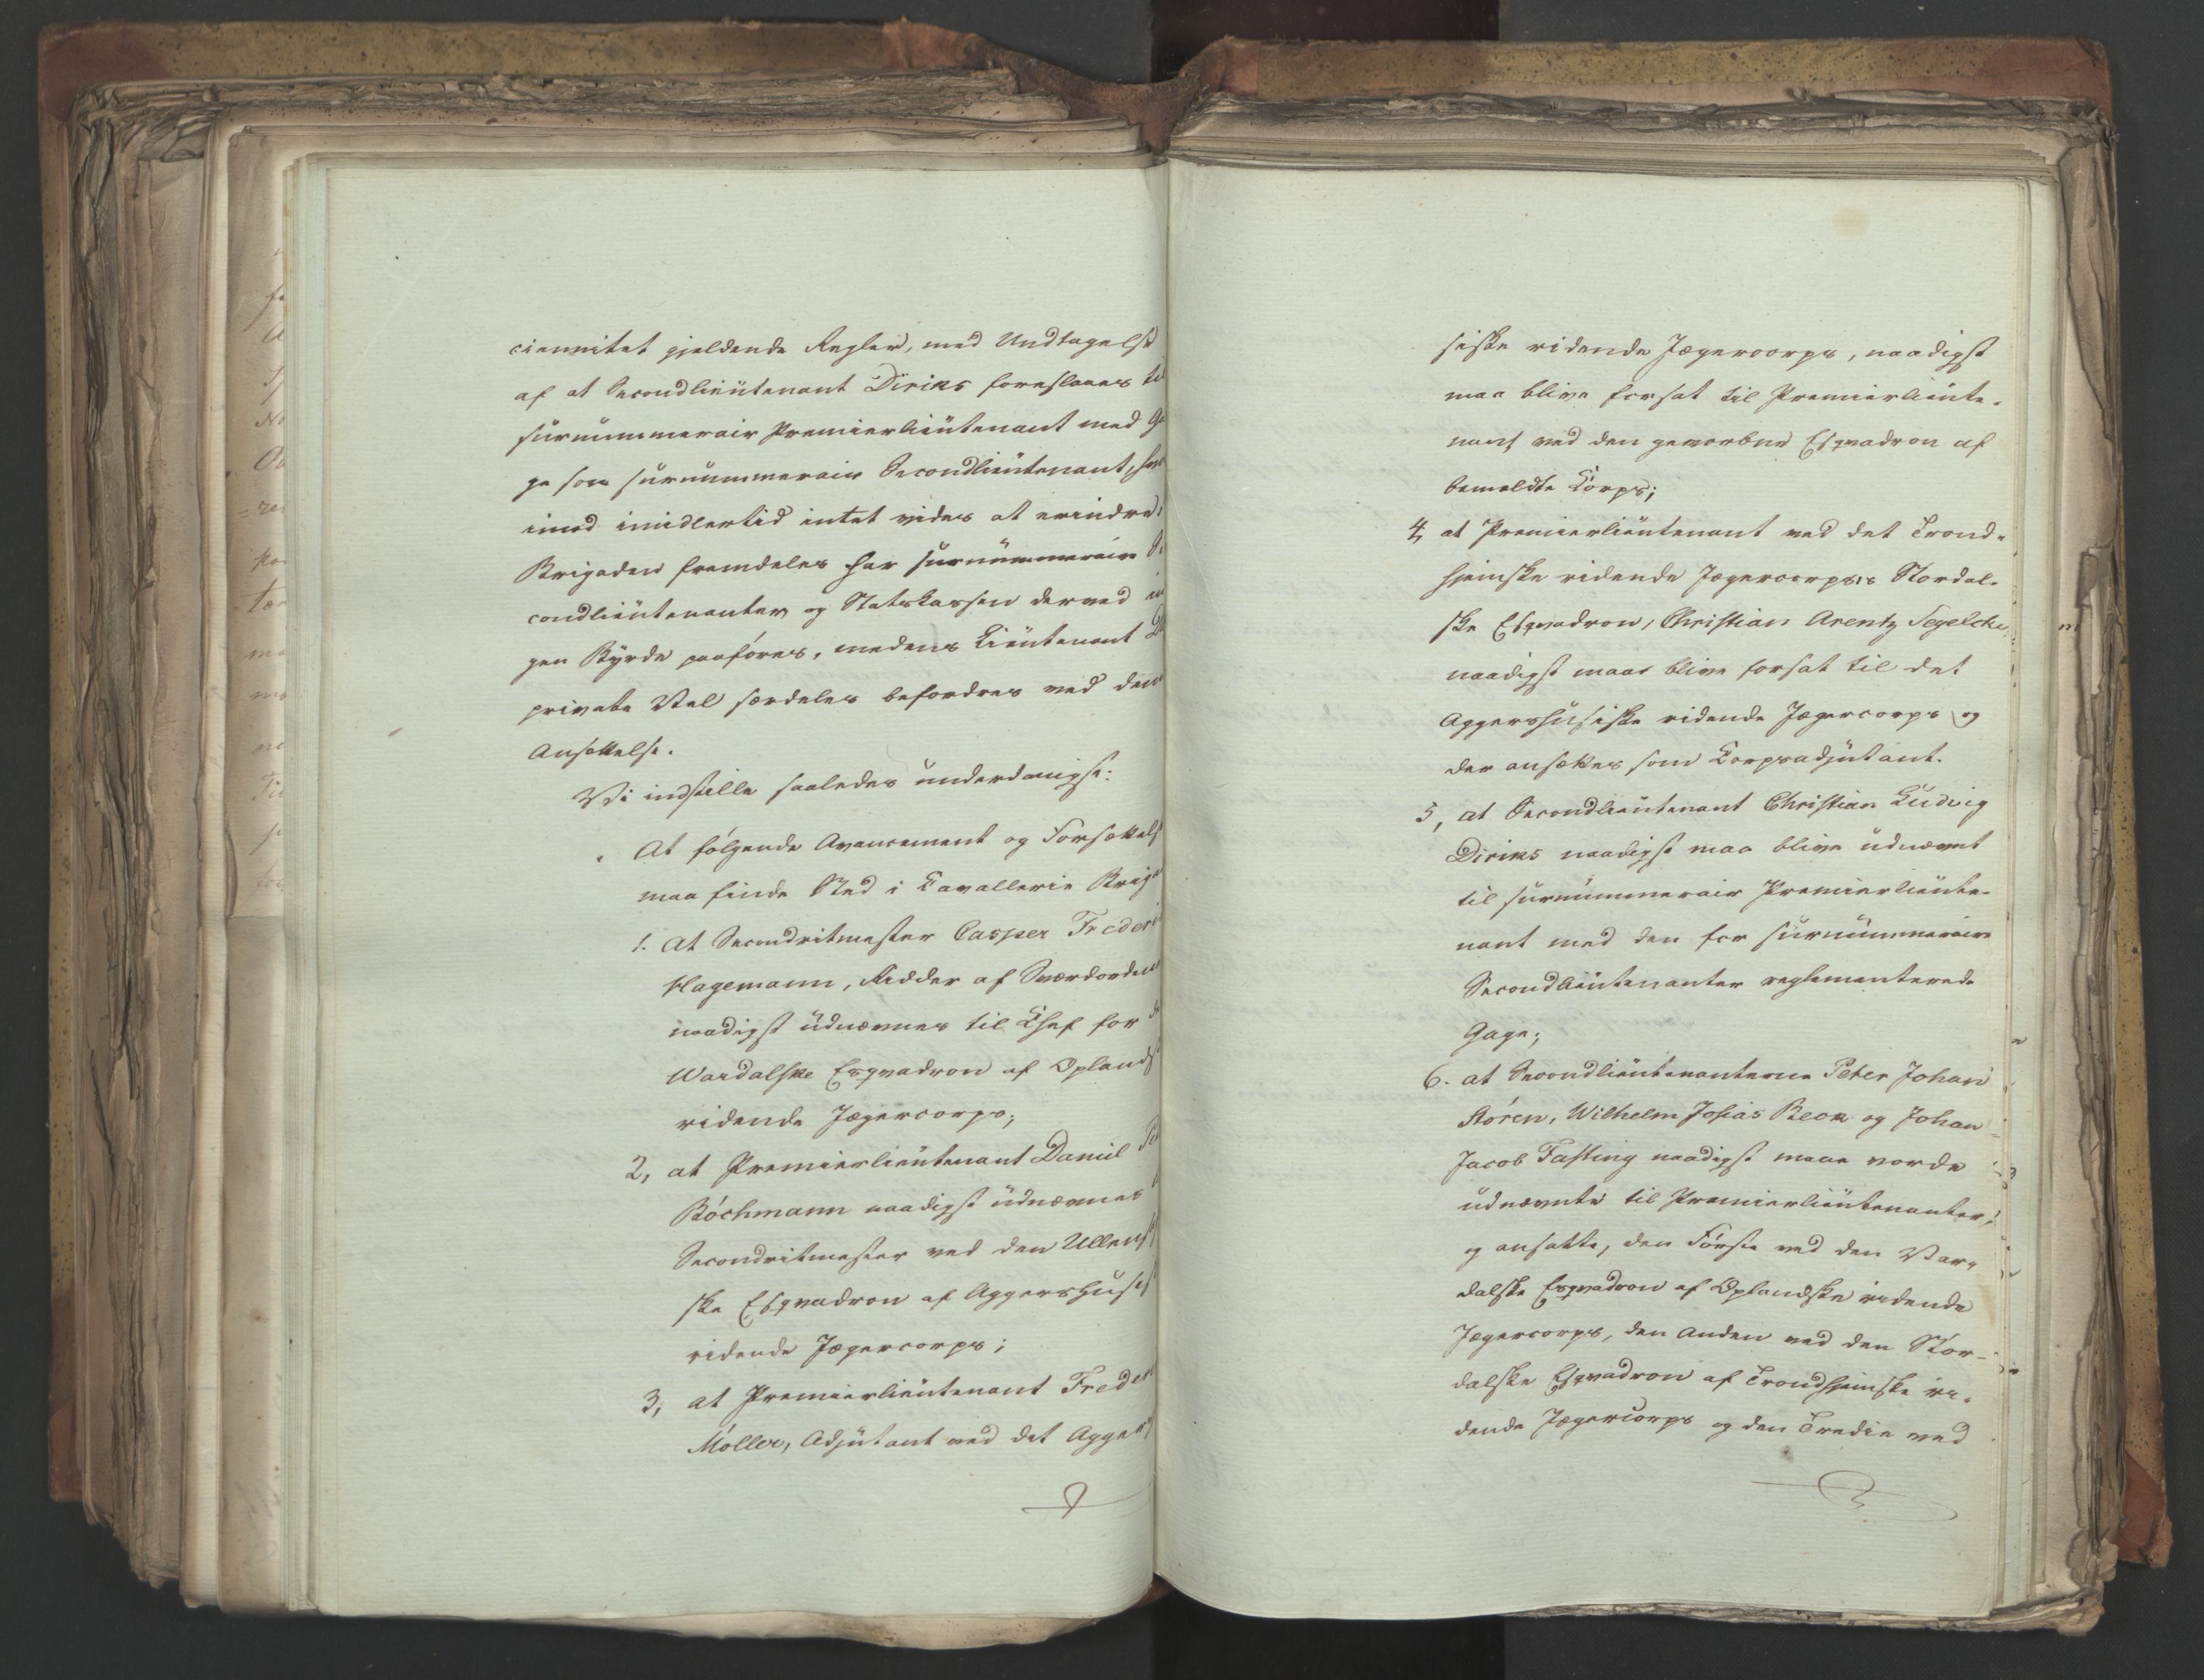 ciennitet gjeldende Regler, med Undtagelse
af at Secondlieutenant Diriks foreslaaes til
surnummerair Premierlieutenant med Ga
ge som surnummerair Secondlieutenant, hvor
imod imidlertid intet vides at erindre,
Brigaden fremdeles har surnummeraire Se
condlieutenanter og Statskassen derved in
gen Byrde paaføres, medens Lieutenant
private Vel særdeles befordres ved den
Ansættelse.
Vi indstille saaledes underdanigst:
At følgende Avancement og Forsættelse
maa finde Sted i Cavallerie Briga
1. At Secondritmester Casper Frederi
Hagemann, Ridder af Sværdorden
naadigst udnævnes til Chef for
Wardalske Esqvadron af Oplandsk
ridende Jægercorps;
2, at Premierlieutenant Daniel
Bóchmann naadigst udnævnes
Secondritmester ved den Ullens
ske Esqvadron af Aggershusis
ridende Jægercorps;
3, at Premierlieutenant Freder
Móller, Adjutant ved det Aggers
siske ridende Jægercorps, naadigst
maa blive forsat til Premierlieute-
nant ved den gevorbne Esqvadron af
bemeldte Corps;
4, at Premierlieutenant ved det Trond-
hjemske ridende Jægercorps's Stordal-
ske Esqvadron, Christian Arentz Segelcke,
naadigst maae blive forsat til det
Aggershusiske ridende Jægercorps og
der ansættes som Corpsadjutant.
5, at Secondlieutenant Christian Ludvig
Diriks naadigst maa blive udnævnt
til surnummerair Premierlieute-
nant med den for surnummeraire
Secondlieutenanter reglementerede
Gage;
6. at Secondlieutenanterne Peter Johan
Stóren, Wilhelm Josias Beck og Johan
Jacob Fasting naadigst maae vorde
udnævnte til Premierlieutenanter,
og ansatte, den Første ved den Var-
dalske Esqvadron af Oplandske ridende
Jægercorps, den Anden ved den Stor-
dalske Esqvadron af Trondhjemske ri-
dende Jægercorps og den Tredie ved